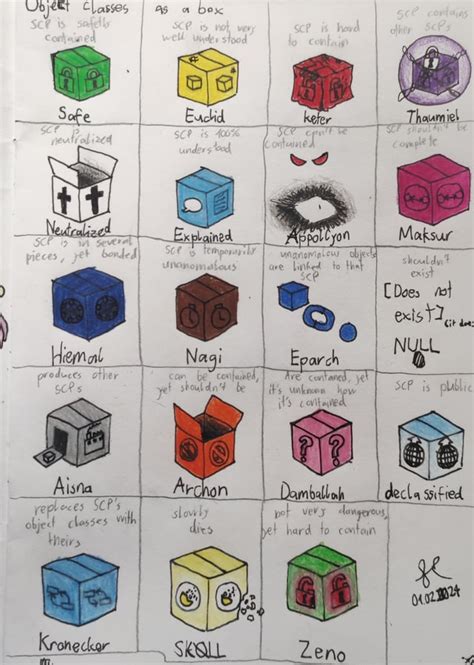 Object classes as a box
SCP is safetly
contained
Safe
SCP is not very
well understood
Euclid
SCP is hard
to contain
keter
SCP contains
other SCPs
Thaumiel
SCP is
neutralized
Neutralized
SCP is 100%
understood
Explained
SCP can't be
contained
Appollyon
SCP shouldn't be
complete
Maksur
SCP is in several
pieces, yet bonded
Hiemal
SCP is temporarily
unanomalous
Nagi
unanomalous objects
are linked to that
SCP
Eparch
shouldn't
exist
[Does not
exist]
NULL
produces other
SCPs
Aisna
can be contained,
yet shouldn't be
Archon
Are contained, yet
it's unknown how
it's contained
Damballah
SCP is public
declassified
replaces SCP's
object classes with
theirs
Kronecker
slowly
dies
SKOLL
not very dangerous,
yet hard to contain
Zeno
01.02.2024